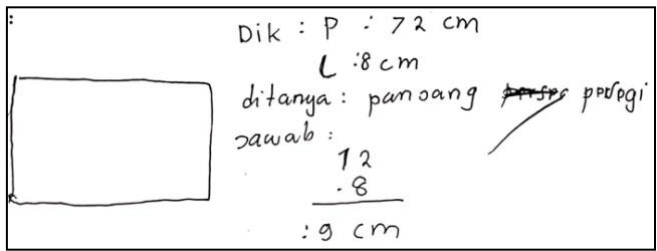 :
Dik : P : 72 cm
L : 8 cm
ditanya : panjang persegi
Jawab :
72
. 8
: 9 cm